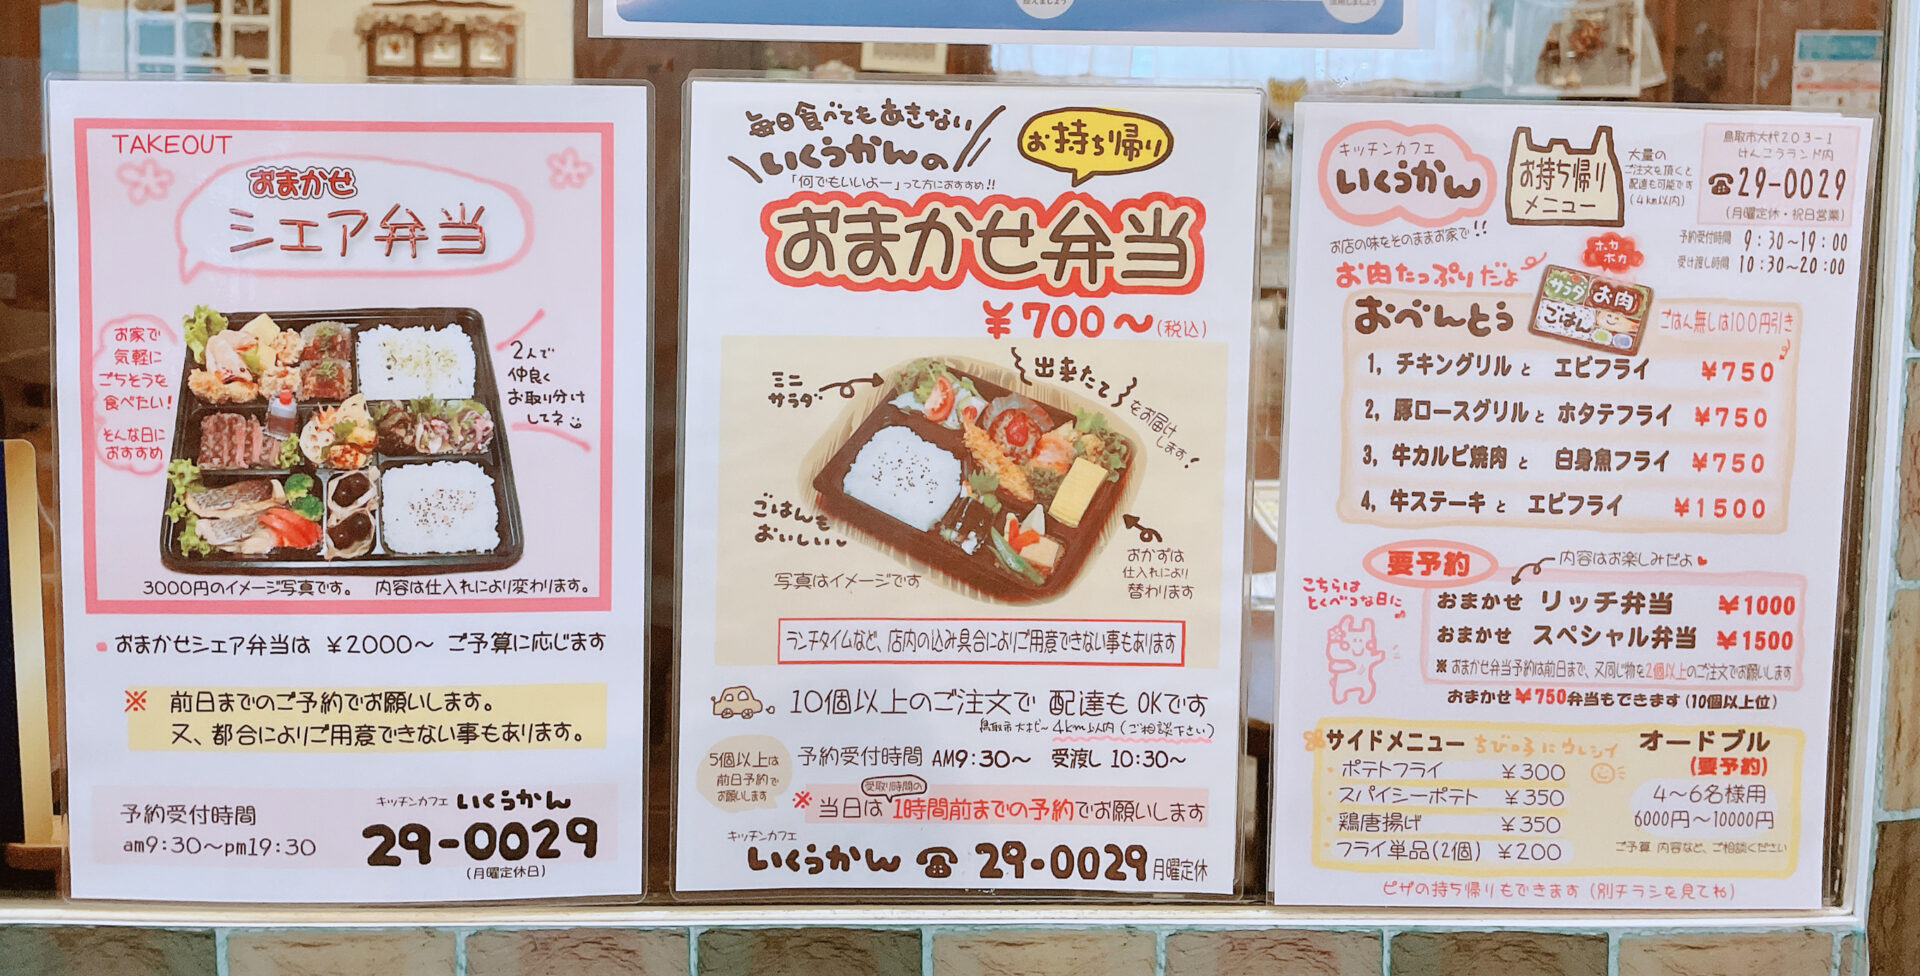 控えましょう
活用しましょう
TAKEOUT
おまかせ
シェア弁当
お家で
気軽に
ごちそうを
食べたい!
そんな日に
おすすめ
2人で
仲良く
お取り分け
してネ
3000円のイメージ写真です。 内容は仕入れにより変わります。
おまかせシェア弁当は ¥2000〜 ご予算に応じます
※ 前日までのご予約でお願いします。
又、都合によりご用意できない事もあります。
予約受付時間
am9:30〜pm19:30
キッチンカフェ いくうかん
29-0029
(月曜定休日)
毎日食べてもあきない
いくうかんの
「何でもいいよー」って方におすすめ!!
お持ち帰り
おまかせ弁当
¥700〜(税込)
ミニ
サラダ
出来たて
をお届け
します!
ごはんも
おいしい
写真はイメージです
おかずは
仕入れにより
替わります
ランチタイムなど、店内の込み具合によりご用意できない事もあります
10個以上のご注文で 配達もOKです
鳥取市大杙〜4km以内(ご相談下さい)
5個以上は
前日予約で
お願いします
予約受付時間 AM9:30〜 受渡し 10:30〜
受取り時間の
※当日は1時間前までの予約でお願いします
キッチンカフェ
いくうかん ☎ 29-0029 月曜定休
キッチンカフェ
いくうかん
お持ち帰り
メニュー
大量の
ご注文を頂くと
配達も可能です
(4km以内)
鳥取市大杙203-1
けんこうランド内
☎29-0029
(月曜定休・祝日営業)
予約受付時間 9:30〜19:00
受け渡し時間 10:30〜20:00
お店の味をそのままお家で!!
お肉たっぷりだよ
おべんとう
ホカ
ホカ
サラダ
お肉
ごはん
ごはん無しは100円引き
1, チキングリルと エビフライ ¥750
2, 豚ロースグリルと ホタテフライ ¥750
3, 牛カルビ焼肉と 白身魚フライ ¥750
4, 牛ステーキと エビフライ ¥1500
要予約
内容はお楽しみだよ♥
こちらは
とくべつな日に♪
おまかせ リッチ弁当 ¥1000
おまかせ スペシャル弁当 ¥1500
※おまかせ弁当予約は前日まで、又同じ物を2個以上のご注文でお願いします
おまかせ¥750弁当もできます(10個以上位)
サイドメニュー ちびっ子にウレシイ
ポテトフライ ¥300
スパイシーポテト ¥350
鶏唐揚げ ¥350
フライ単品(2個) ¥200
オードブル
(要予約)
4〜6名様用
6000円〜10000円
ご予算 内容など、ご相談ください
ピザの持ち帰りもできます(別チラシを見てね)